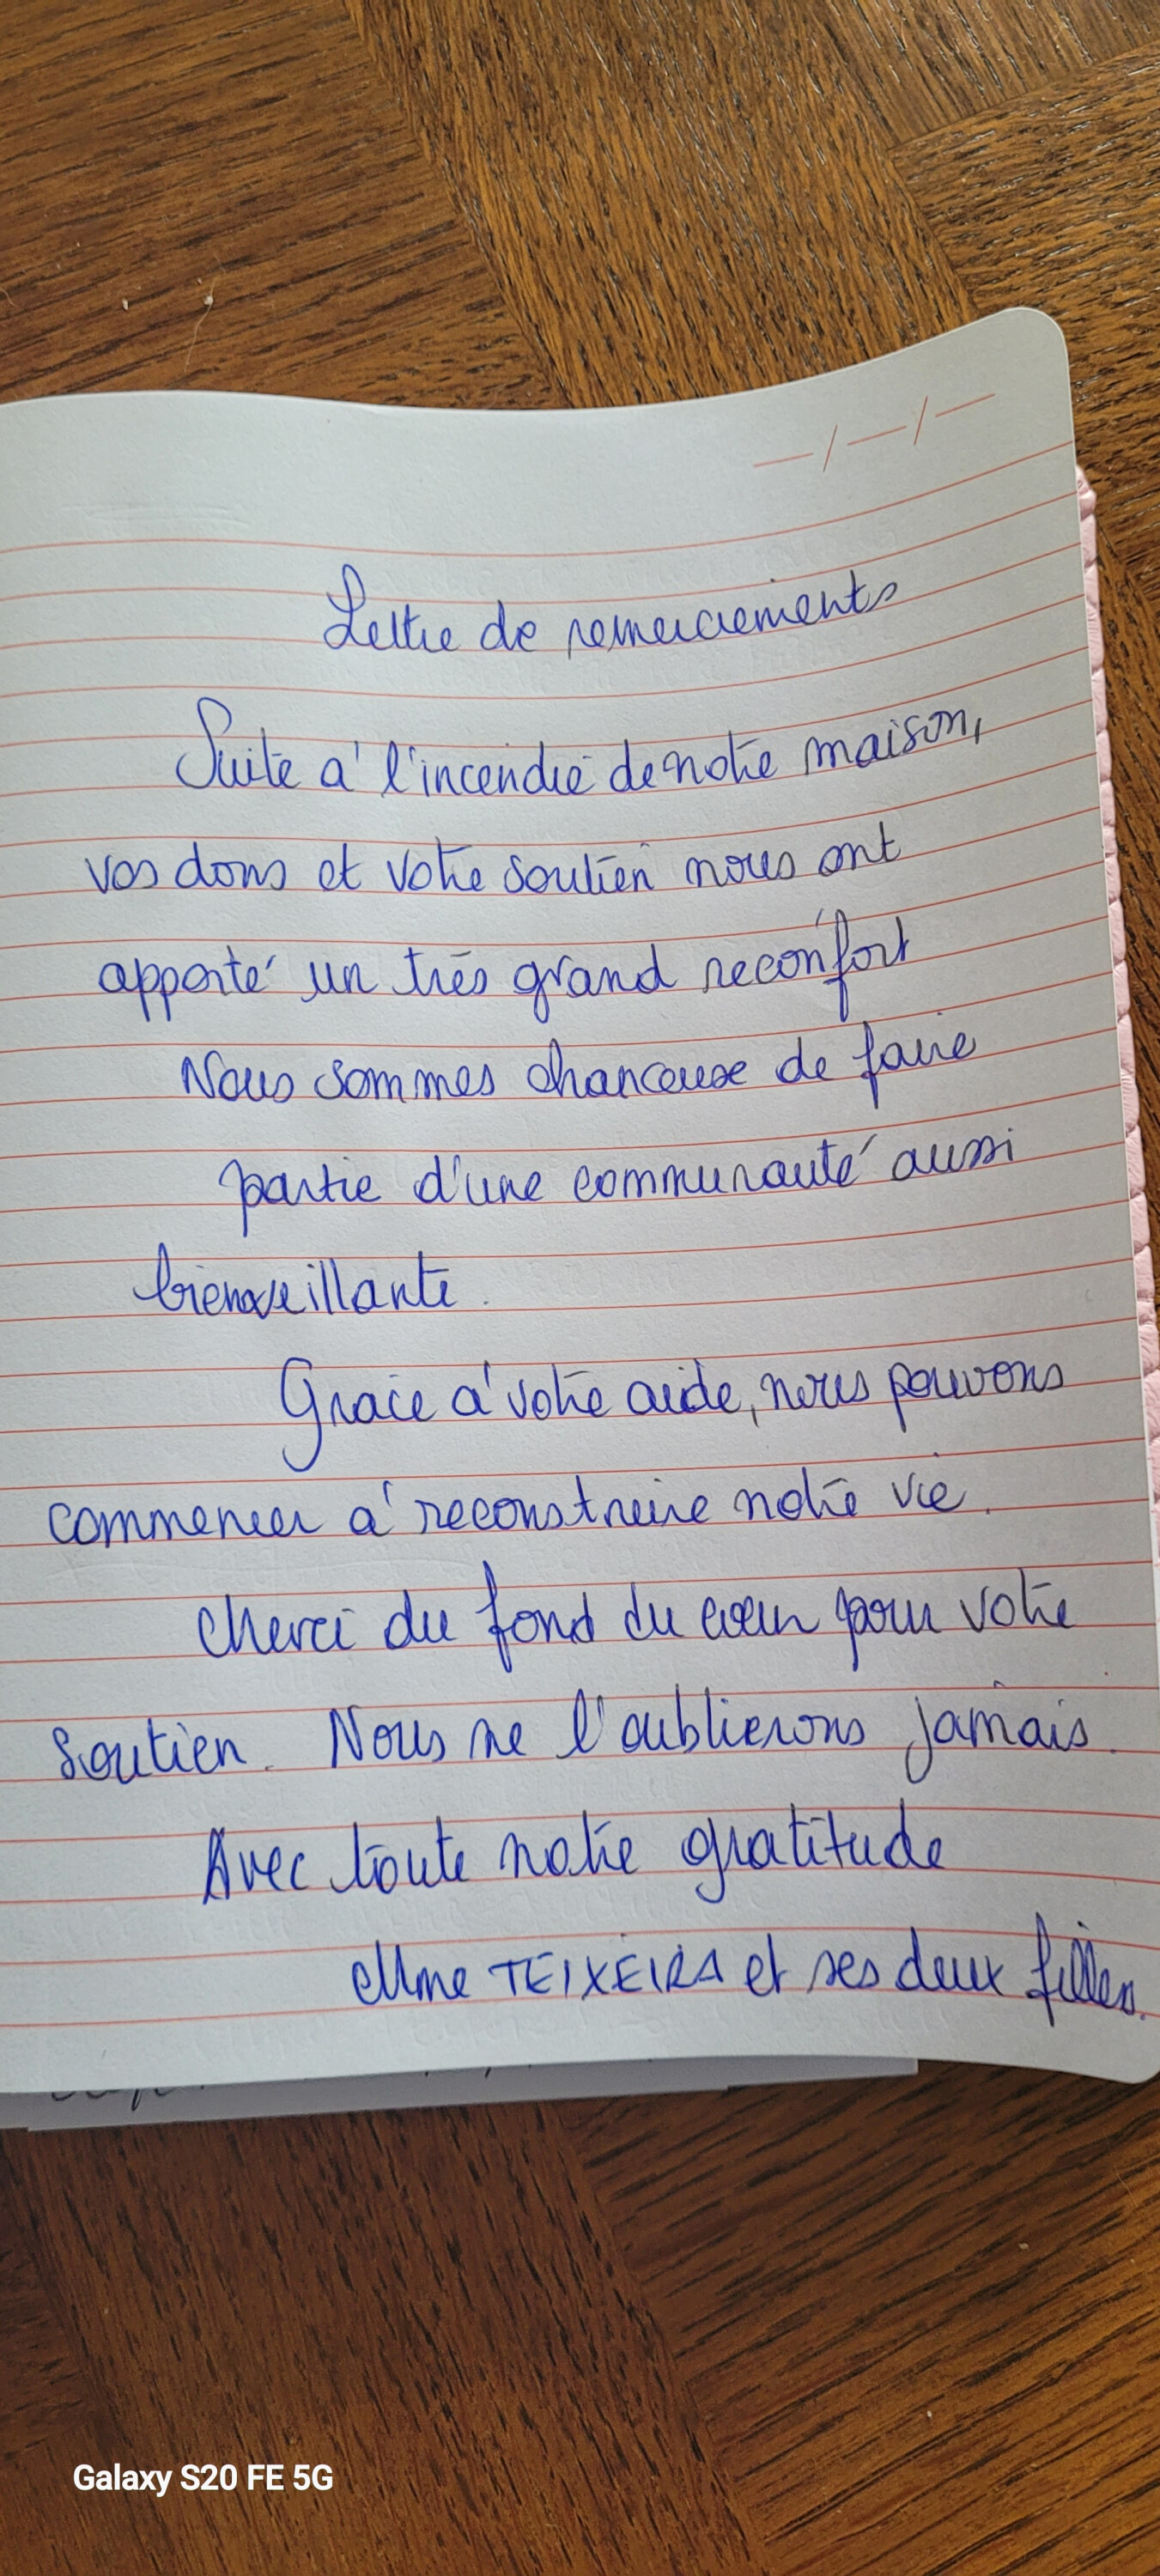 Lettre de remerciements
Suite à l'incendie de notre maison,
vos dons et votre soutien nous ont
apporté un très grand réconfort
Nous sommes chanceuse de faire
partie d'une communauté aussi
bienveillante.
Grace à votre aide, nous pouvons
commencer à reconstruire notre vie.
Merci du fond du cœur pour votre
soutien. Nous ne l'oublierons jamais.
Avec toute notre gratitude
Mme TEIXEIRA et ses deux filles.
Galaxy S20 FE 5G